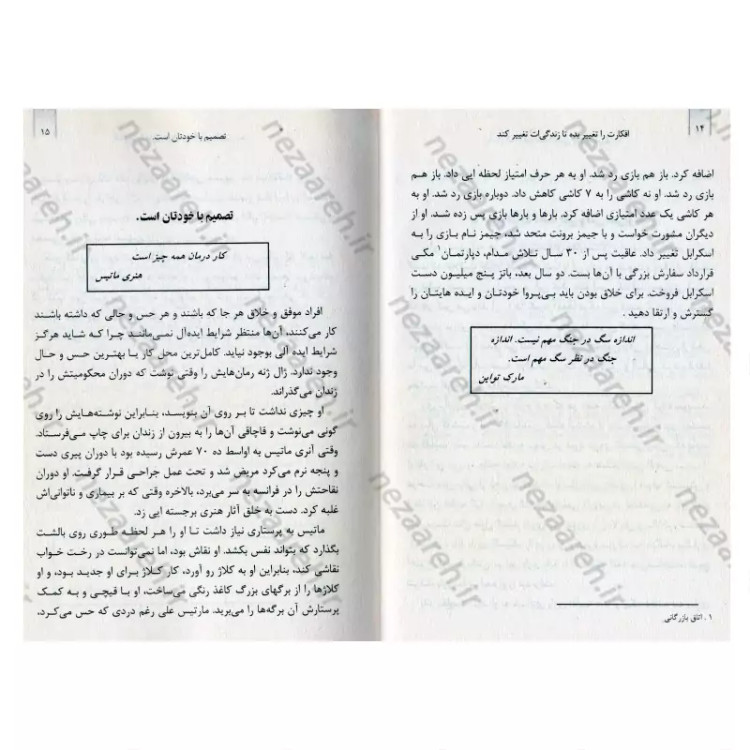 ۱۴
افکارت را تغییر بده تا زندگی‌ات تغییر کند
اضافه کرد. باز هم بازی رد شد. او به هر حرف امتیاز لحظه ایی داد. باز هم
بازی رد شد. او نه کاشی را به ۷ کاشی کاهش داد. دوباره بازی رد شد. او به
هر کاشی یک عدد امتیازی اضافه کرد. بارها و بارها بازی پس زده شد. او از
دیگران مشورت خواست و با جیمز برونت متحد شد، جیمز نام بازی را به
اسکرابل تغییر داد. عاقبت پس از ۳۰ سال تلاش مدام، دپارتمان۱ مکی
قرارداد سفارش بزرگی با آن‌ها بست. دو سال بعد، باتز پنج میلیون دست
اسکرابل فروخت. برای خلاق بودن باید بی‌پروا خودتان و ایده هایتان را
گسترش و ارتقا دهید .
اندازه سگ در جنگ مهم نیست. اندازه
جنگ در نظر سگ مهم است.
مارک تواین
۱ . اتاق بازرگانی
تصمیم با خودتان است.
۱۵
تصمیم با خودتان است.
کار درمان همه چیز است
هنری ماتیس
افراد موفق و خلاق هر جا که باشند و هر حس و حالی که داشته باشند
کار می‌کنند، آن‌ها منتظر شرایط ایده‌آل نمی‌مانند چرا که شاید هرگز
شرایط ایده آلی بوجود نیاید. کامل‌ترین محل کار با بهترین حس و حال
وجود ندارد. ژال ژنه رمان‌هایش را وقتی نوشت که دوران محکومیتش را در
زندان می‌گذراند.
او چیزی نداشت تا بر روی آن بنویسد، بنابراین نوشته‌هایش را روی
گونی می‌نوشت و قاچاقی آن‌ها را به بیرون از زندان برای چاپ می‌فرستاد.
وقتی آنری ماتیس به اواسط ده ۷۰ عمرش رسیده بود با دوران پیری دست
و پنجه نرم می‌کرد مریض شد و تحت عمل جراحی قرار گرفت. او دوران
نقاحتش را در فرانسه به سر می‌برد، بالاخره وقتی که بر بیماری و ناتوانی‌اش
غلبه کرد. دست به خلق آثار هنری برجسته ایی زد.
ماتیس به پرستاری نیاز داشت تا او را هر لحظه طوری روی بالشت
بگذارد که بتواند نفس بکشد. او نقاش بود، اما نمی‌توانست در رخت خواب
نقاشی کند، بنابراین او به کلاژ رو آورد، کار کلاژ برای او جدید بود، و او
کلاژها را از برگهای بزرگ کاغذ رنگی می‌ساخت، او با قیچی و به کمک
پرستارش آن برگه‌ها را می‌برید. مارتیس علی رغم دردی که حس می‌کرد،
nezaareh.ir
nezaareh.ir
nezaareh.ir
nezaareh.ir
nezaareh.ir
nezaareh.ir